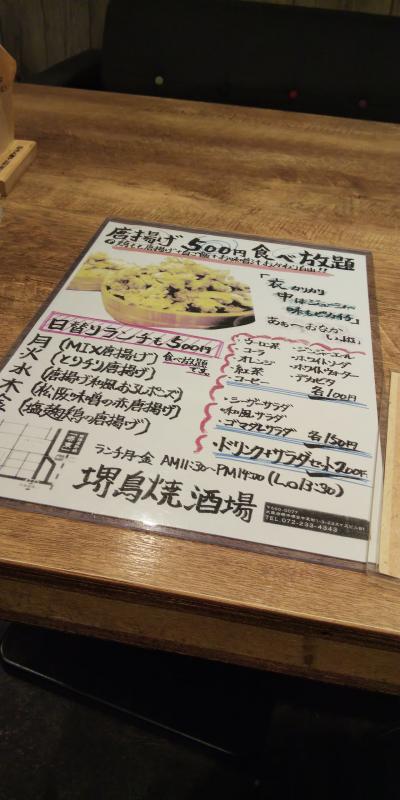 唐揚げ 500円 食べ放題
「衣カリカリ
中はジューシー
味もピカイチ」
あぁ〜おなか
日替りランチも500円
月 (MIX唐揚げ) 食べ放題
火 (とりチリ唐揚げ)
水 (唐揚げ和風おろしポン酢)
木 (松阪味噌の赤唐揚げ)
金 (塩麹鶏の唐揚げ)
・ウーロン茶
・コーラ
・オレンジ
・紅茶
・コーヒー
・ジンジャーエール
・ホワイトソーダ
・ホワイトウォーター
・デカビタ
各100円
・シーザーサラダ
・和風サラダ
・ゴマダレサラダ 各150円
・ドリンク+サラダセット200円
ランチ月-金 AM11:30〜PM14:00 (L.o13:30)
堺鳥焼酒場
TEL.072-233-4343